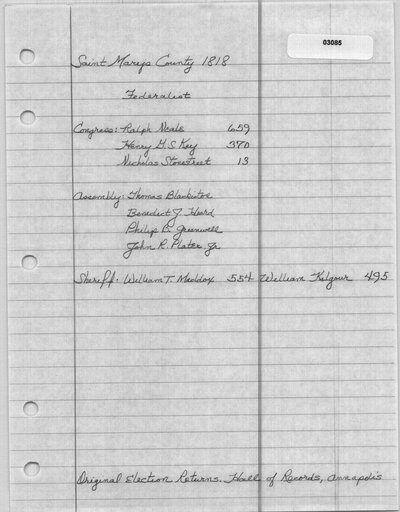 03085
Saint Marys County 1818
Federalist
Congress: Ralph Neale 659
Henry G S Key 370
Nicholas Stonestreet 13
Assembly: Thomas Blackistone
Benedict J Heard
Philip B. Greenwell
John R. Plater Jr
Sheriff: William T. Maddox 554 William Kilgour 495
Original Election Returns. Hall of Records, Annapolis